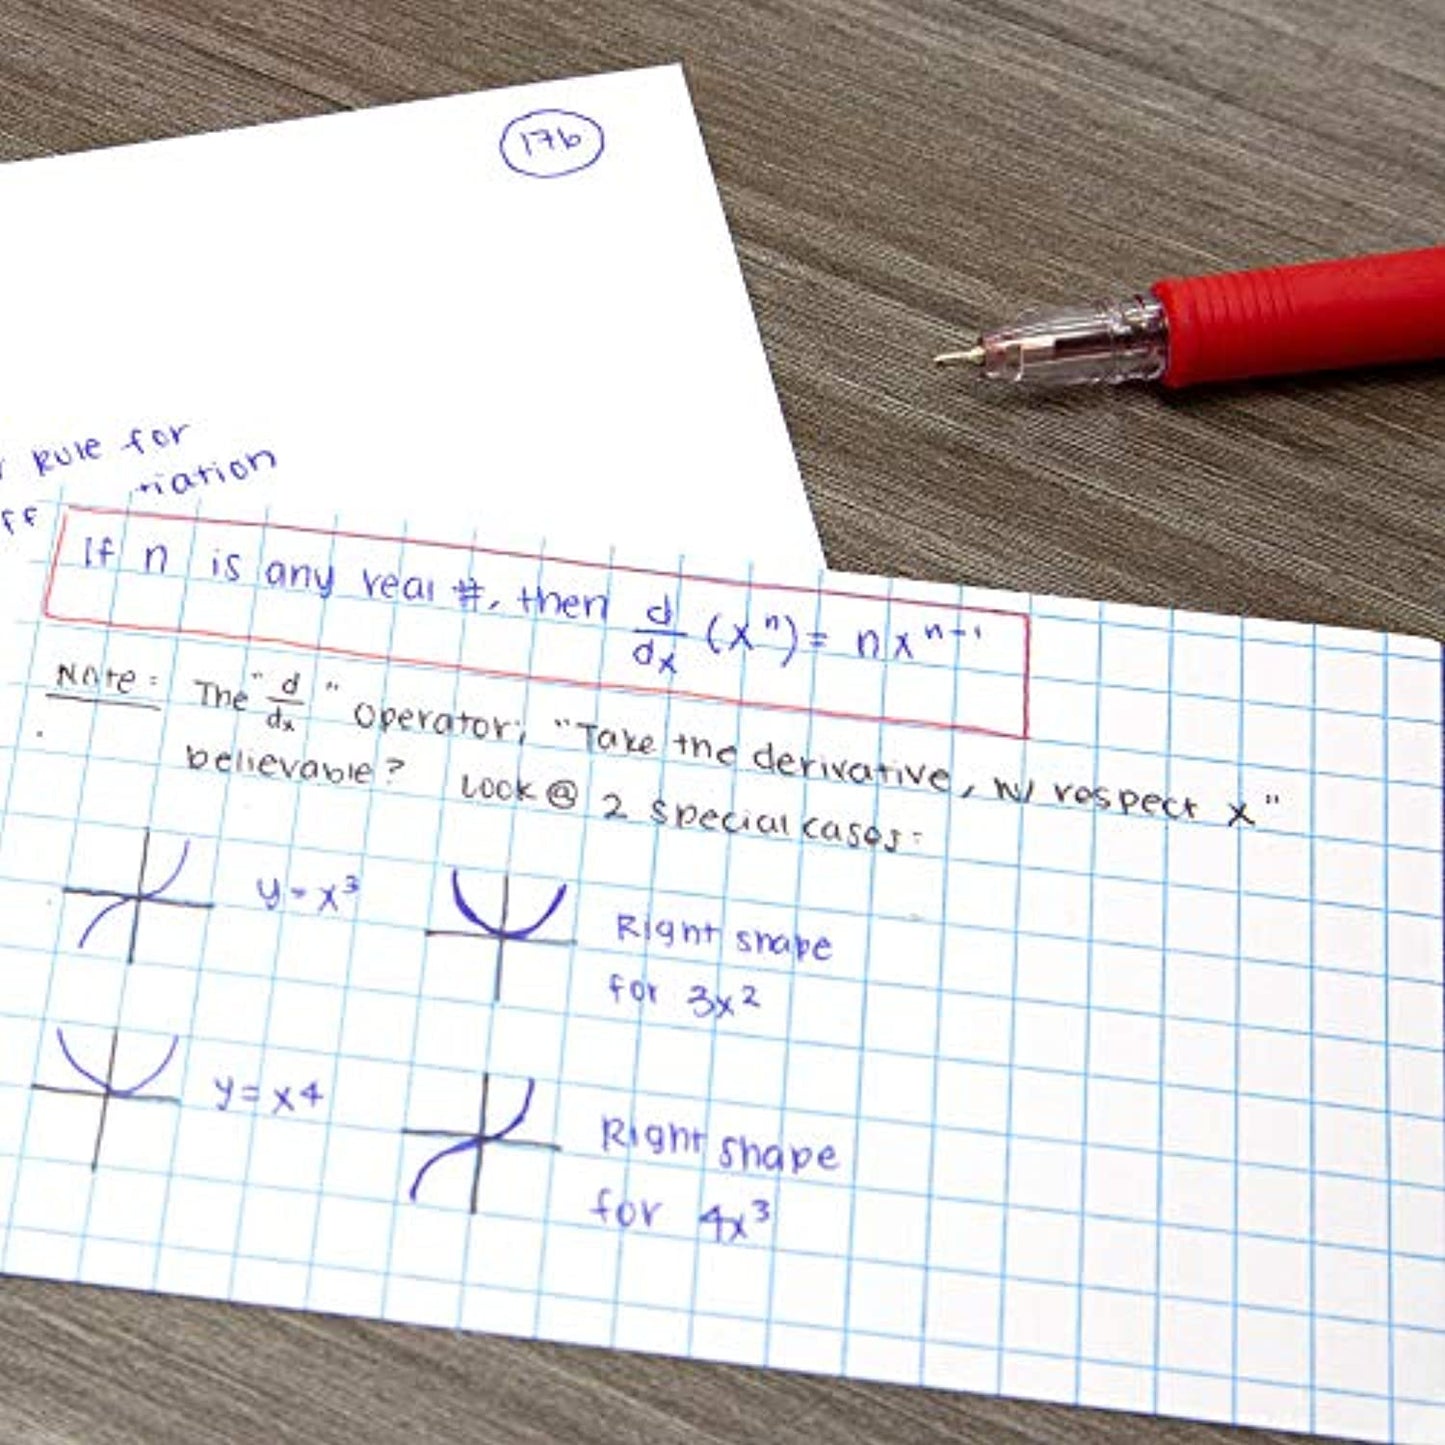 17b
Rule for
ff tiation
If n is any real #, then d/dx (x^n) = nx^{n-1}
Note: The "d/dx" operator; "Take the derivative, w/ respect x"
believable? Look @ 2 special cases:
y = x^3
Right shape
for 3x^2
y = x4
Right shape
for 4x^3